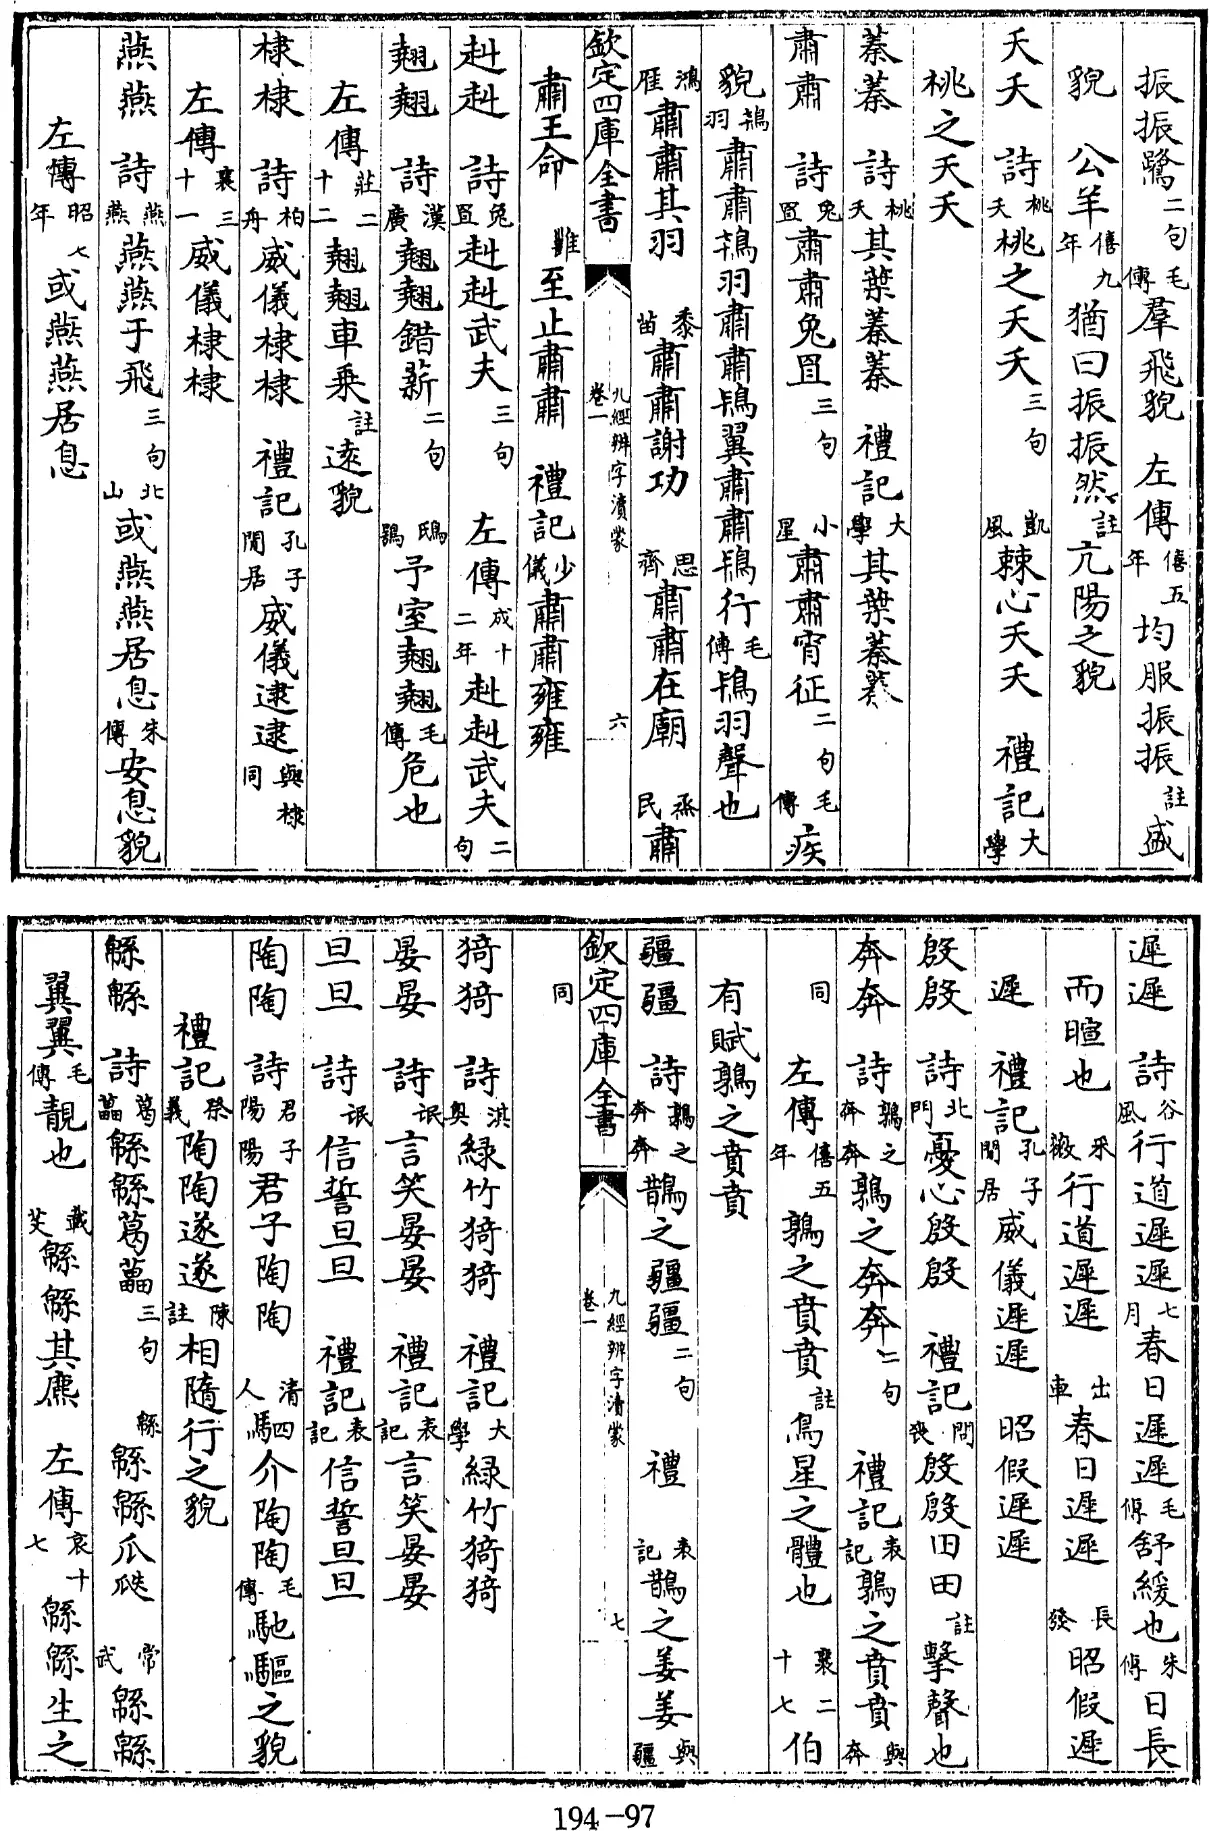 振振鷺二句毛傳羣飛貌　左傳僖五年均服振振註盛
貌　公羊僖九年猶曰振振然註亢陽之貌
夭夭　詩桃夭桃之夭夭三句　凱風棘心夭夭　禮記大學
桃之夭夭
蓁蓁　詩桃夭其葉蓁蓁　禮記大學其葉蓁蓁
肅肅　詩兔罝肅肅兔罝三句　小星肅肅宵征二句毛傳疾
貌　鴇羽肅肅鴇羽肅肅鴇翼肅肅鴇行毛傳鴇羽聲也
鴻雁肅肅其羽　黍苗肅肅謝功　思齊肅肅在廟　烝民肅
欽定四庫全書　九經辨字瀆蒙卷一　六
肅王命　雝至止肅肅　禮記少儀肅肅雍雍
赳赳　詩兔罝赳赳武夫三句　左傳成十二年赳赳武夫二句
翹翹　詩漢廣翹翹錯薪二句　鴟鴞予室翹翹毛傳危也
左傳莊二十二翹翹車乘註遠貌
棣棣　詩柏舟威儀棣棣　禮記孔子閒居威儀逮逮與棣同
左傳襄三十一威儀棣棣
燕燕　詩燕燕燕燕于飛三句　北山或燕燕居息朱傳安息貌
左傳昭七年或燕燕居息
遲遲　詩谷風行道遲遲　七月春日遲遲毛傳舒緩也朱傳日長
而暄也　采薇行道遲遲　出車春日遲遲　長發昭假遲
遲　禮記孔子閒居威儀遲遲　昭假遲遲
殷殷　詩北門憂心殷殷　禮記問喪殷殷田田註擊聲也
奔奔　詩鶉之奔奔鶉之奔奔二句　禮記表記鶉之賁賁與奔
同　左傳僖五年鶉之賁賁註鳥星之體也　襄二十七伯
有賦鶉之賁賁
彊彊　詩鶉之奔奔鵲之彊彊二句　禮表記鵲之姜姜與彊
欽定四庫全書　九經辨字瀆蒙卷一　七
同
猗猗　詩淇奧綠竹猗猗　禮記大學綠竹猗猗
晏晏　詩氓言笑晏晏　禮記表記言笑晏晏
旦旦　詩氓信誓旦旦　禮記表記信誓旦旦
陶陶　詩君子陽陽君子陶陶　清人駟介陶陶毛傳馳驅之貌
禮記祭義陶陶遂遂陳註相隨行之貌
緜緜　詩葛藟緜緜葛藟三句　緜緜緜瓜瓞　常武緜緜
翼翼毛傳靚也　載芟緜緜其麃　左傳哀十七緜緜生之
194-97